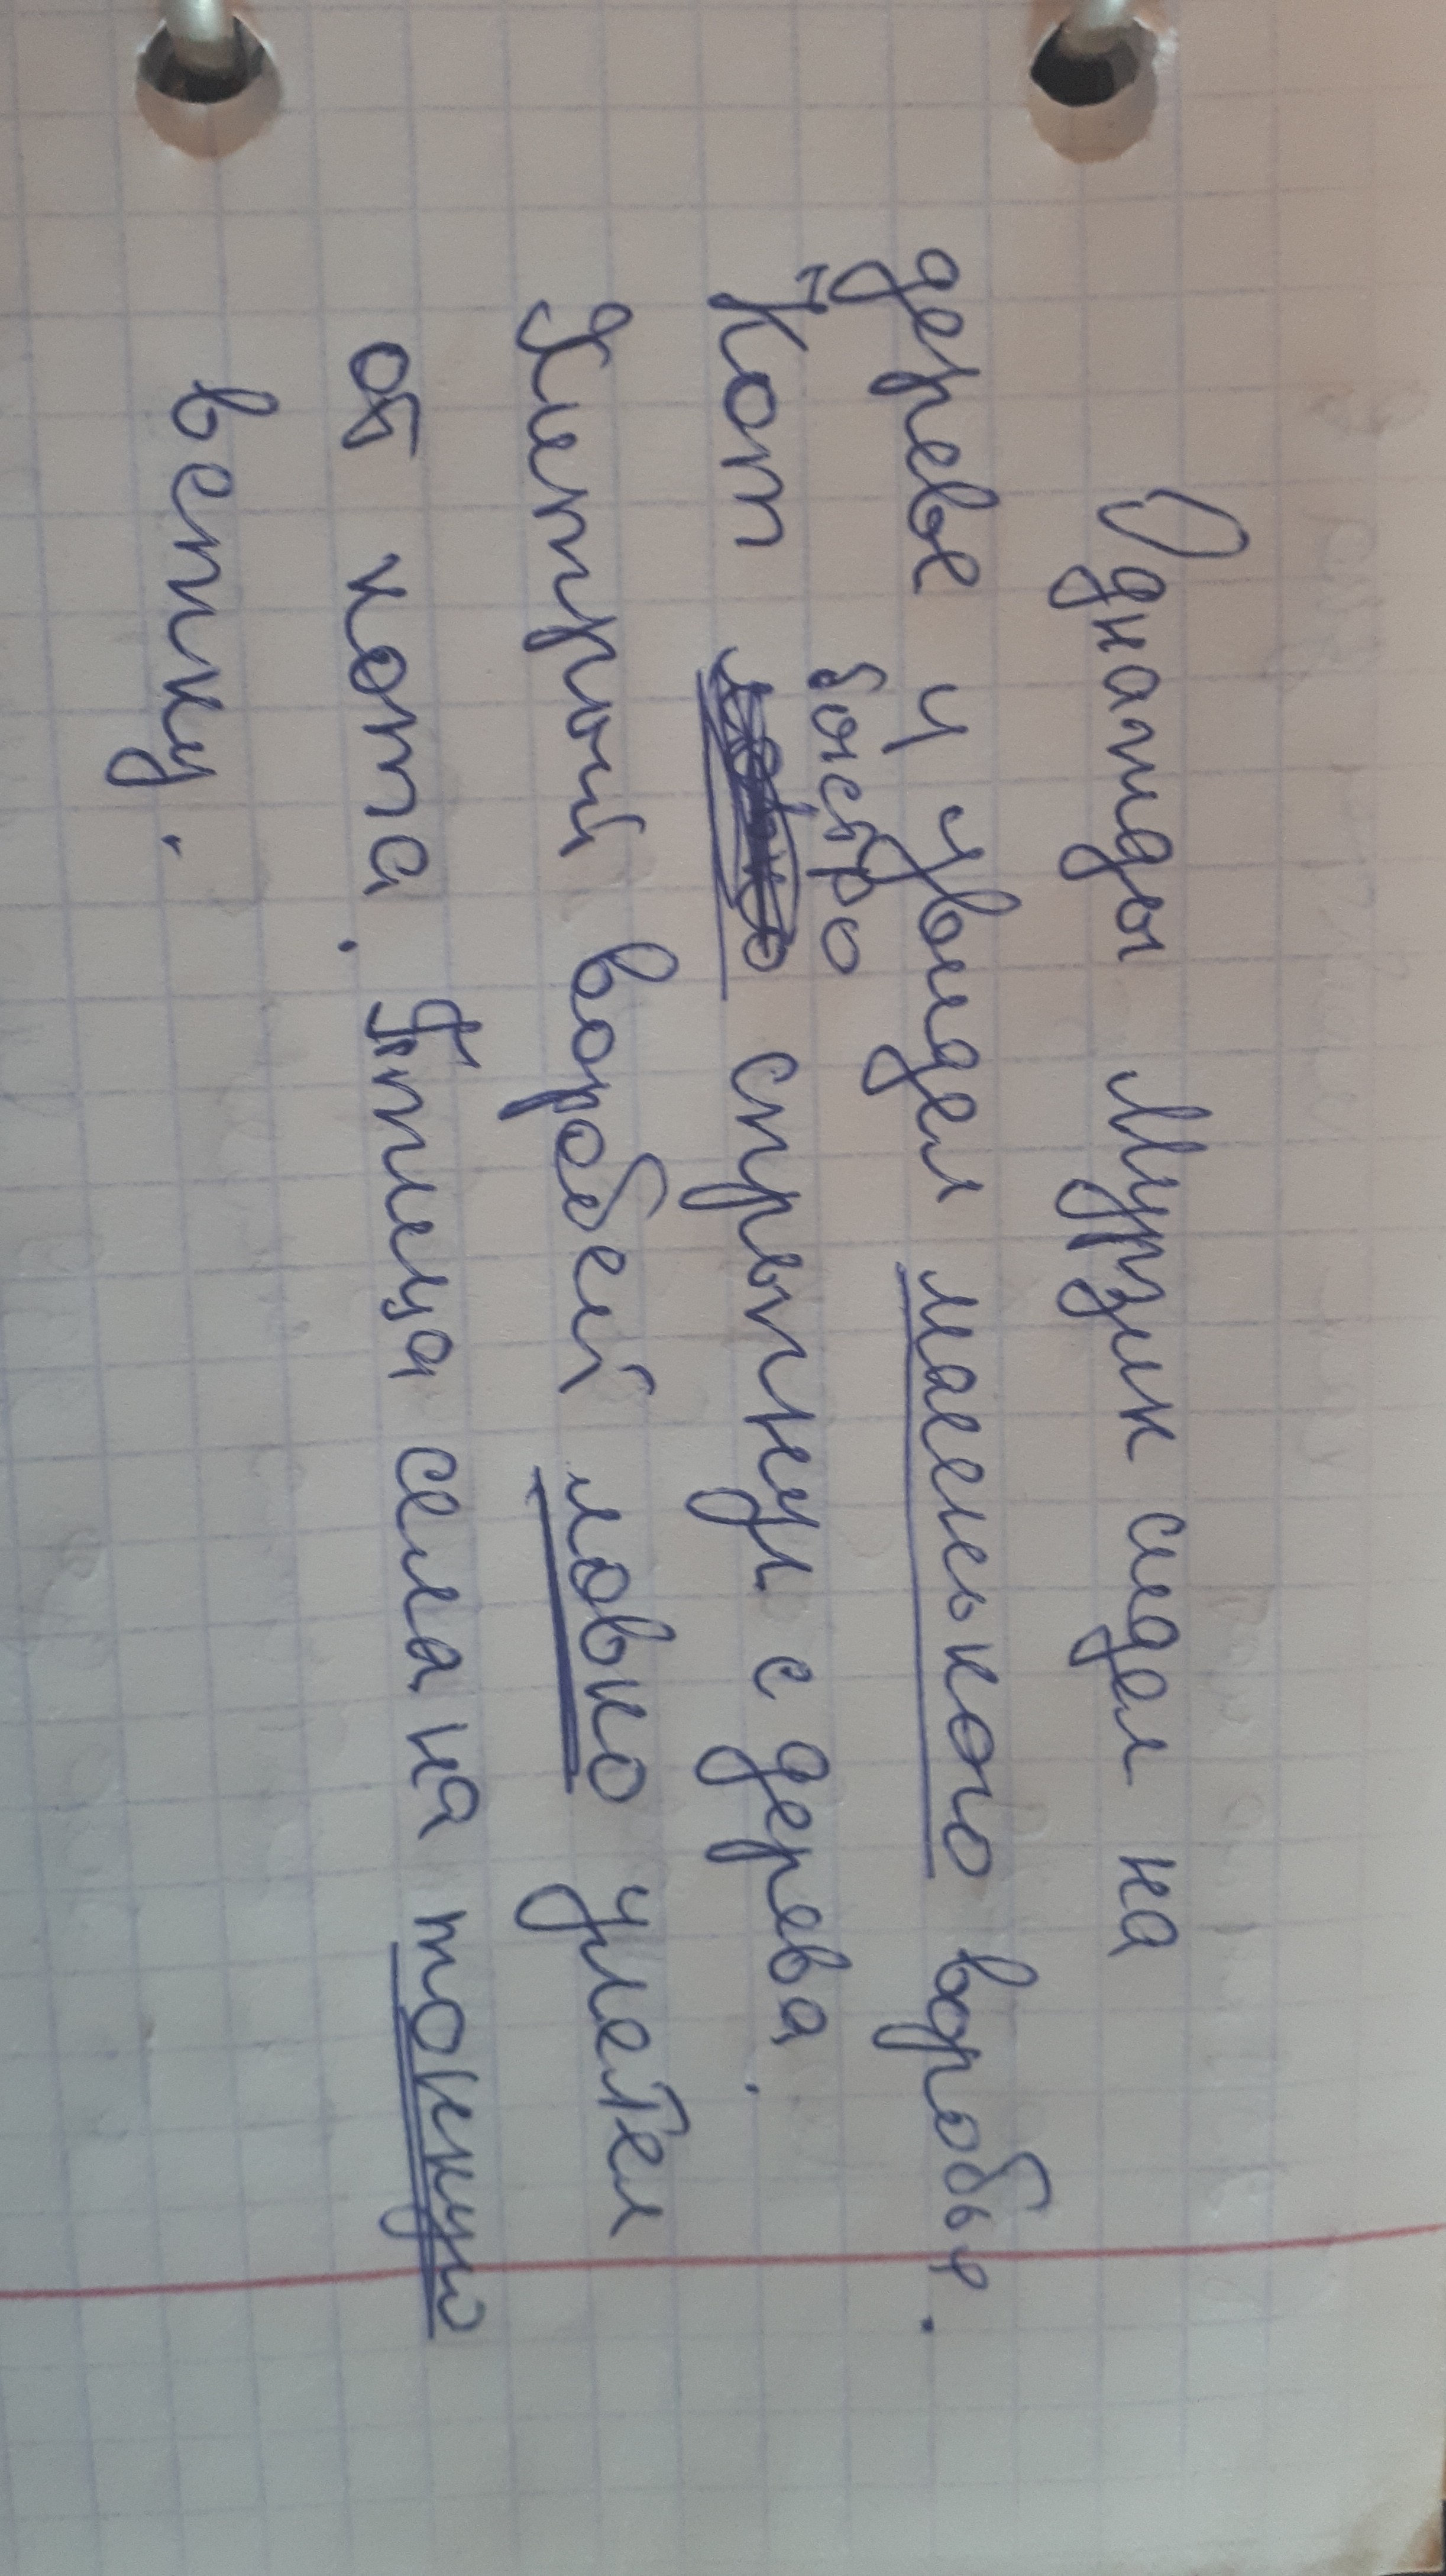 Однажды Мурзик сидел на
дереве и увидел маленького воробья.
быстро
Кот спрыгнул с дерева.
Хитрый воробей ловко улетел
от кота. Птица села на тонкую
ветку.